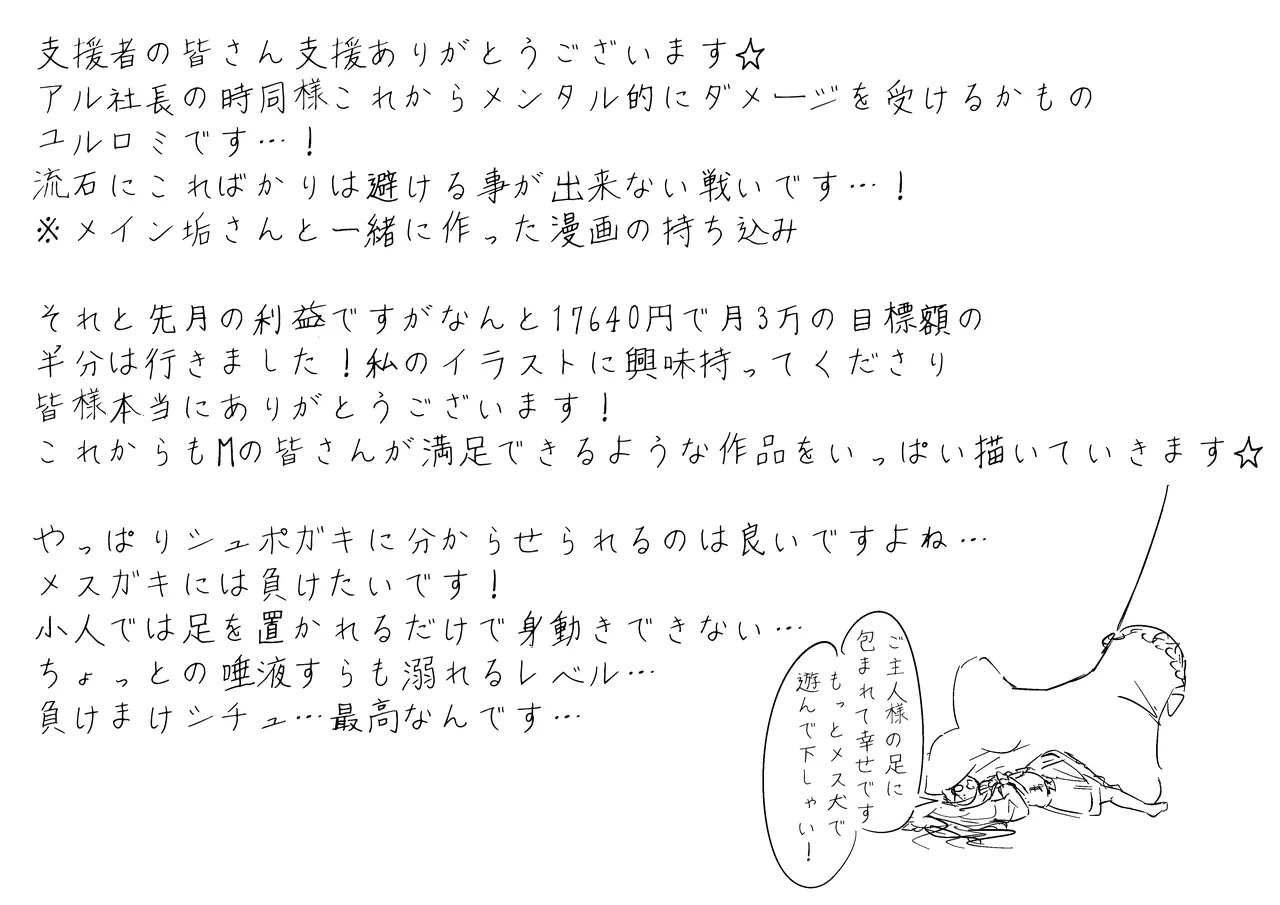 支援者の皆さん支援ありがとうございます☆
アル社長の時同様これからメンタル的にダメージを受けるかもの
ユルロミです…！
流石にこればかりは避ける事が出来ない戦いです…！
※メイン垢さんと一緒に作った漫画の持ち込み
それと先月の利益ですがなんと17640円で月3万の目標額の
半分は行きました！私のイラストに興味持ってくださり
皆様本当にありがとうございます！
これからもMの皆さんが満足できるような作品をいっぱい描いていきます☆
やっぱりシュポガキに分からせられるのは良いですよね…
メスガキには負けたいです！
小人では足を置かれるだけで身動きできない…
ちょっとの唾液すらも溺れるレベル…
負けまけシチュ…最高なんです…
ご主人様の足に
包まれて幸せです
もっとメス犬で
遊んで下しゃい！